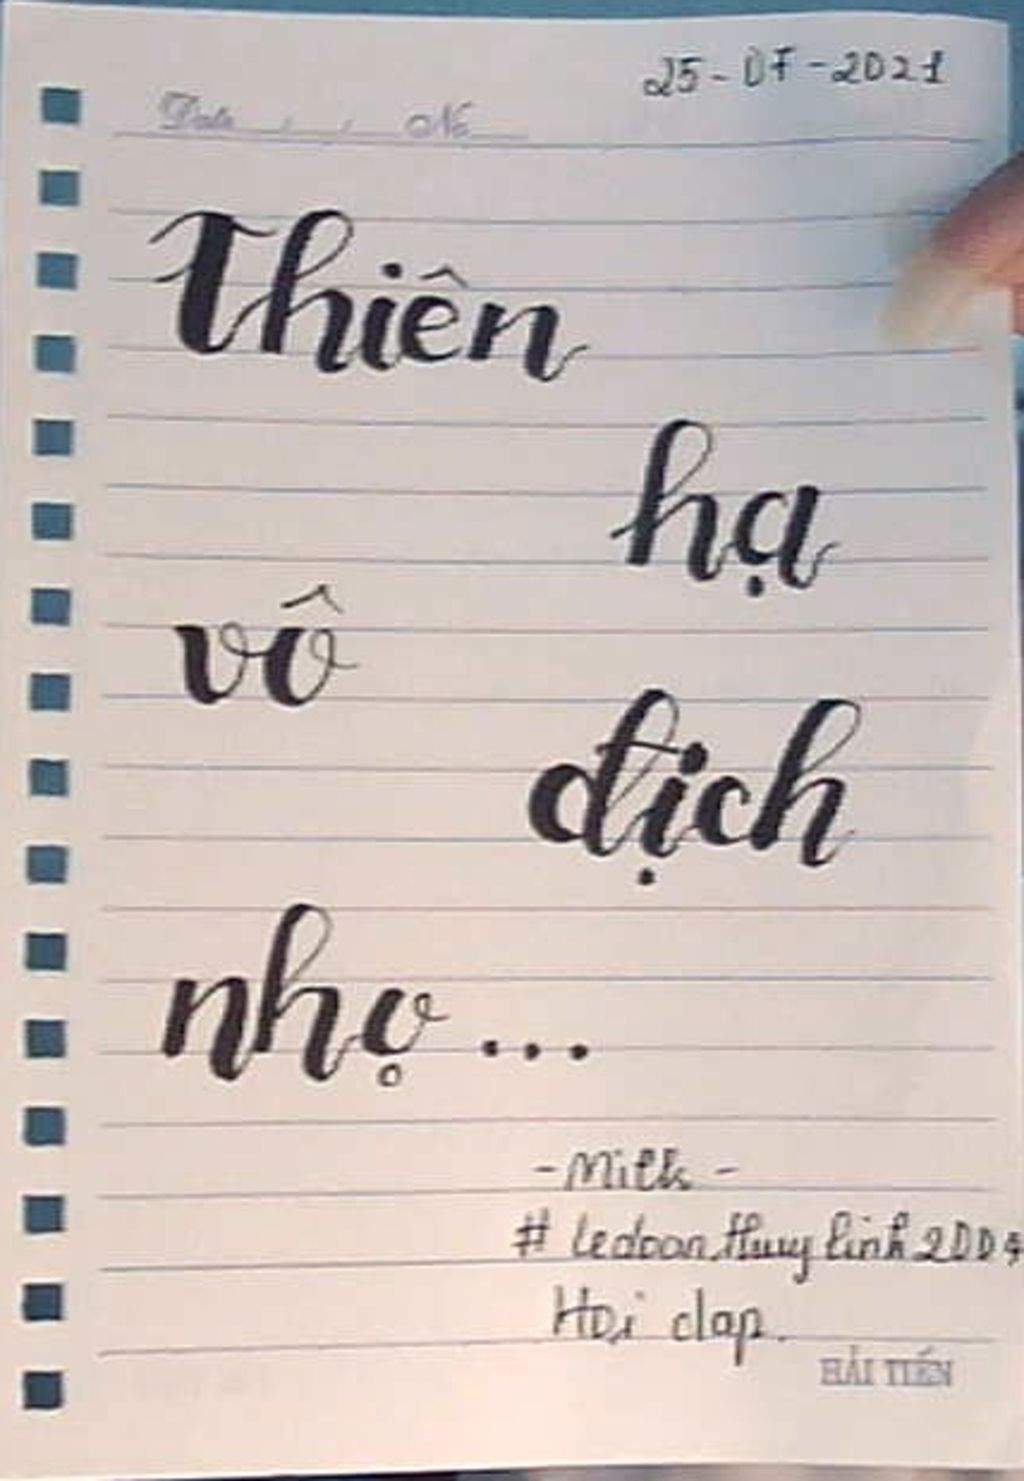 25-07-2021
Date / / No
Thiên
hạ
vô
địch
nhọ...
-Milk-
#ledoanthuylinh2009
Hoi dap.
HẢI TIẾN